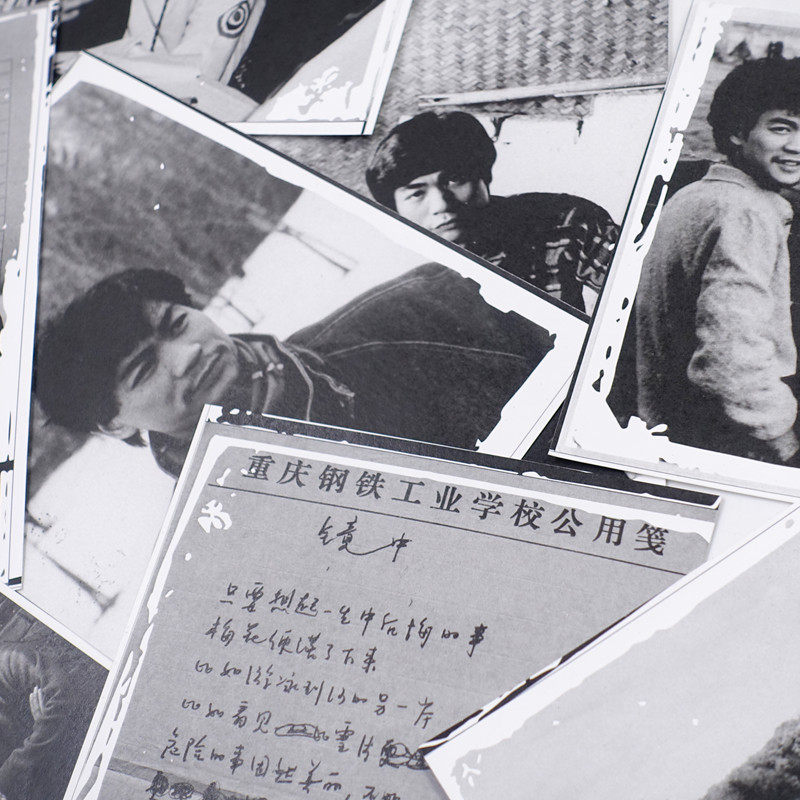 重庆钢铁工业学校公用笺
镜中
只要想起一生中后悔的事
梅花便落了下来
比如游泳到河的另一岸
比如看见
危险的事固然美丽，不如